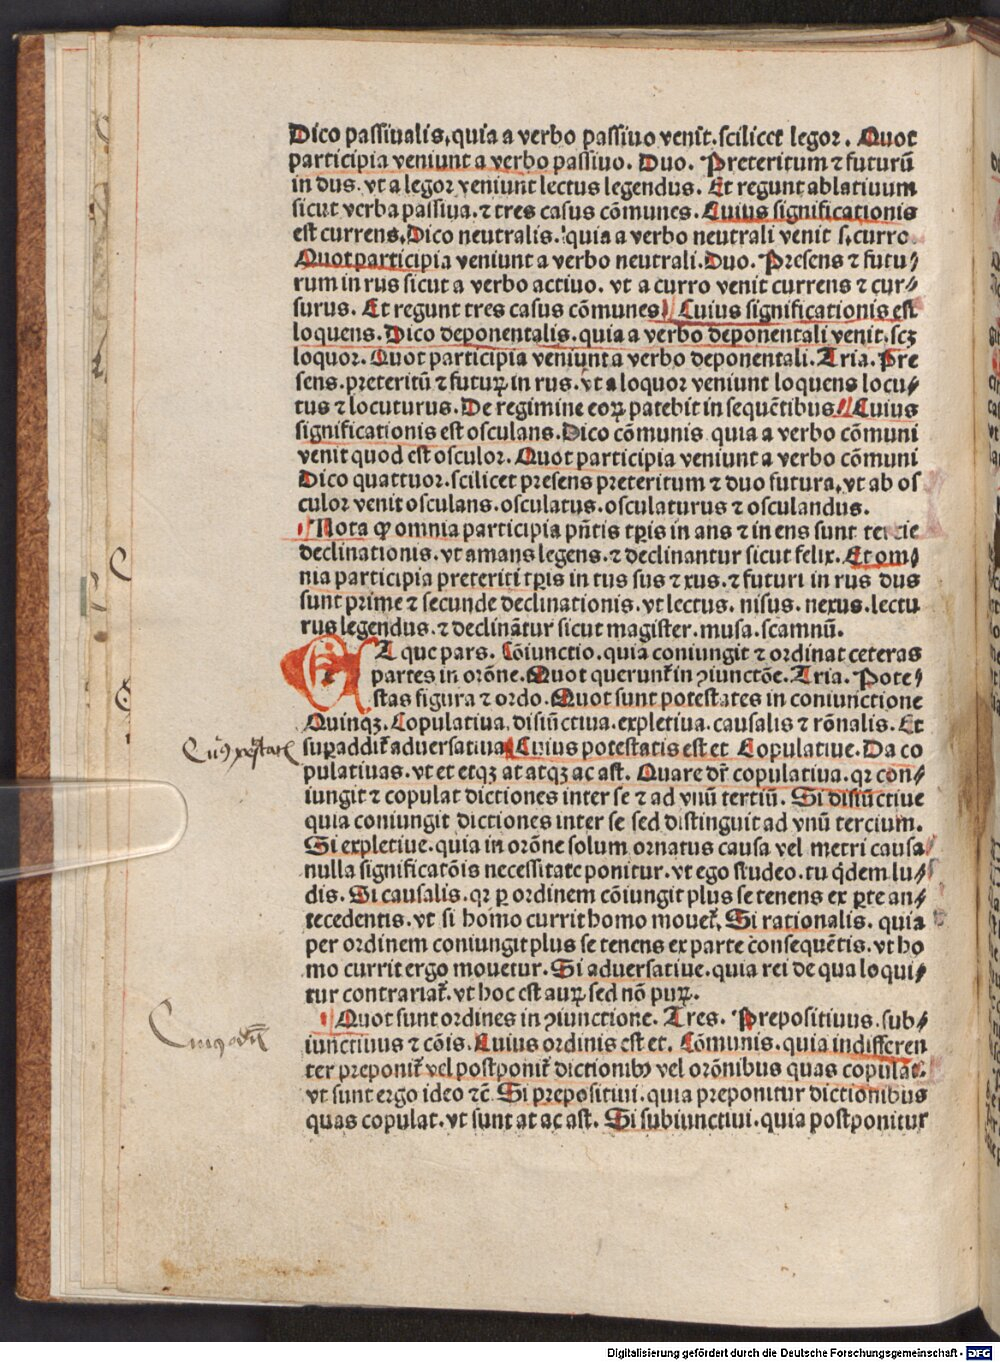 Dico passiualis, quia a verbo passiuo venit. scilicet legor. Quot
participia veniunt a verbo passiuo. Duo. Preteritum ⁊ futurū
in dus. vt a legor veniunt lectus legendus. Et regunt ablatiuum
sicut verba passiua. ⁊ tres casus cōmunes. Cuius significationis
est currens. Dico neutralis. quia a verbo neutrali venit s. curro
Quot participia veniunt a verbo neutrali. Duo. Presens ⁊ futu⸗
rum in rus sicut a verbo actiuo. vt a curro venit currens ⁊ cur⸗
surus. Et regunt tres casus cōmunes Cuius significationis est
loquens. Dico deponentalis. quia a verbo deponentali venit. scꝫ
loquor. Quot participia veniunt a verbo deponentali. Tria. Pre
sens. preteritū ⁊ futuꝝ in rus. vt a loquor veniunt loquens locu⸗
tus ⁊ locuturus. De regimine eoꝝ patebit in sequētibus Cuius
significationis est osculans. Dico cōmunis quia a verbo cōmuni
venit quod est osculor. Quot participia veniunt a verbo cōmuni
Dico quattuor. scilicet presens preteritum ⁊ duo futura, vt ab os
culor venit osculans. osculatus. osculaturus ⁊ osculandus.
Nota ꝙ omnia participia pn̄tis tꝑis in ans ⁊ in ens sunt tercie
declinationis. vt amans legens. ⁊ declinantur sicut felix. Et om⸗
nia participia preteriti tꝑis in tus sus ⁊ xus. ⁊ futuri in rus dus
sunt prime ⁊ secunde declinationis. vt lectus. nisus. nexus. lectu
rus legendus. ⁊ declinātur sicut magister. musa. scamnū.
ET que pars. Cōiunctio. quia coniungit ⁊ ordinat ceteras
partes in orōne. Quot querunt̄ in ꝯiunctōe. Tria. Pote⸗
stas figura ⁊ ordo. Quot sunt potestates in coniunctione
Quinqꝫ. Copulatiua, disiūctiua. expletiua. causalis ⁊ rōnalis. Et
suꝑaddit̄ aduersatiua Cuius potestatis est et Copulatiue. Da co
pulatiuas. vt et etqꝫ at atqꝫ ac ast. Quare dr̄ copulatiua. qꝛ con⸗
iungit ⁊ copulat dictiones inter se ⁊ ad vnū tertiū. Si disiūctiue
quia coniungit dictiones inter se sed distinguit ad vnū tercium.
Si expletiue. quia in orōne solum ornatus causa vel metri causa
nulla significatōis necessitate ponitur. vt ego studeo. tu q̇dem lu⸗
dis. Si causalis. qꝛ ꝑ ordinem cōiungit plus se tenens ex ꝑte an⸗
tecedentis. vt si homo currit homo mouet̄. Si rationalis. quia
per ordinem coniungit plus se tenens ex parte consequētis. vt ho
mo currit ergo mouetur. Si aduersatiue. quia rei de qua loqui⸗
tur contrariat̄. vt hoc est auꝝ sed nō puꝝ.
Quot sunt ordines in ꝯiunctione. Tres. Prepositiuus. sub⸗
iunctiuus ⁊ cōis. Cuius ordinis est et. Cōmunis. quia indifferen
ter preponit̄ vel postponit̄ dictionibꝫ vel orōnibus quas copulat.
vt sunt ergo ideo ⁊c̄. Si prepositiui. quia preponitur dictionibus
quas copulat. vt sunt at ac ast. Si subiunctiui. quia postponitur
Digitalisierung gefördert durch die Deutsche Forschungsgemeinschaft - DFG